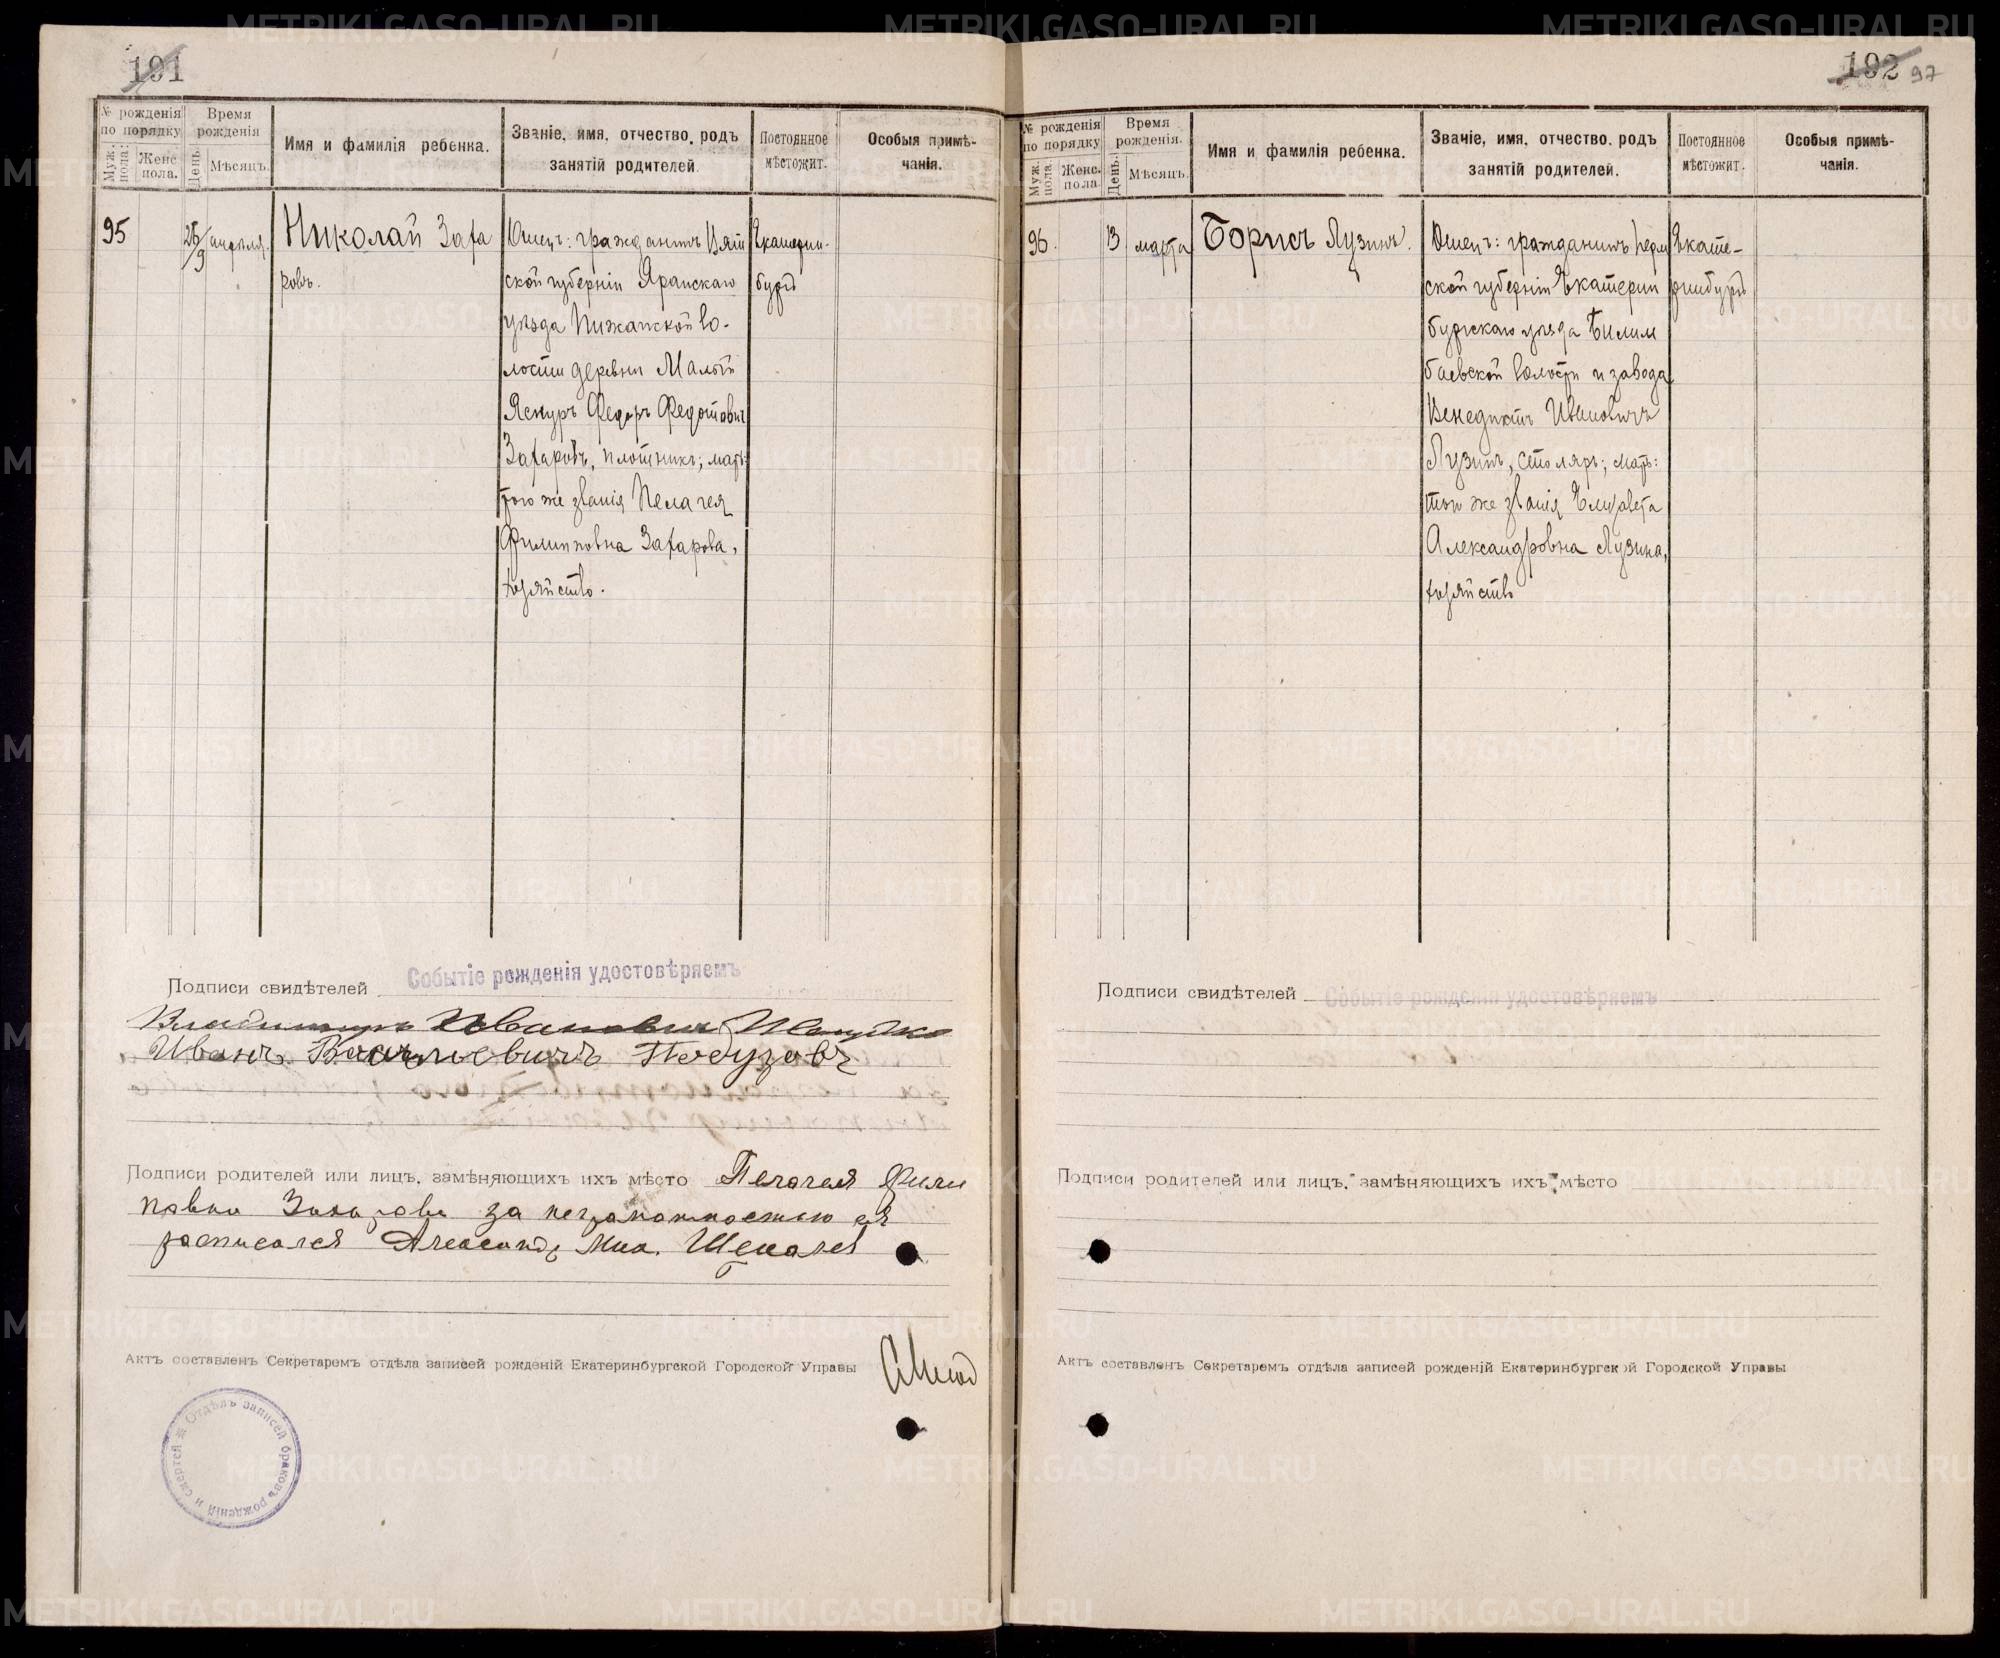 191
№ рожденія по порядку
Муж. пола.
Женс. пола.
Время рожденія
День.
Мѣсяцъ.
Имя и фамилія ребенка.
Званіе, имя, отчество, родъ
занятій родителей.
Постоянное
мѣстожит.
Особыя примѣ-
чанія.
95
26/9
апрѣля.
Николай Заха
ровъ.
Отецъ: гражданинъ Вят
ской губерніи Яранскаго
уѣзда Пижанской во-
лости деревни Малый
Яснуръ Федоръ Федотовичъ
Захаровъ, плотникъ; мать:
того же званія Пелагея
Филипповна Захарова,
хозяйство.
Екатерин-
бургъ
Подписи свидѣтелей
Событіе рожденія удостовѣряемъ
Владимиръ Ивановичъ
Иванъ Васильевичъ
Подписи родителей или лицъ, замѣняющихъ ихъ мѣсто Пелагея Фили
повна Захарова за неграмотностью ея
росписался Александр Мих.
Актъ составленъ Секретаремъ отдѣла записей рожденій Екатеринбургской Городской Управы
Отдѣлъ записей браковъ рожденій и смертей
192 97
№ рожденія
по порядку
Муж. пола.
Женс. пола
Время
рожденія.
День.
Мѣсяцъ.
Имя и фамилія ребенка.
Званіе, имя, отчество, родъ
занятій родителей.
Постоянное
мѣстожит.
Особыя примѣ-
чанія.
96.
13
марта
Борисъ Лузинъ.
Отецъ: гражданинъ Перм
ской губерніи Екатерин
бургскаго уѣзда Билим
баевской волости и завода
Венедиктъ Ивановичъ
Лузинъ, столяръ; мать:
того же званія Елизавета
Александровна Лузина,
хозяйство
Екате-
ринбургъ
Подписи свидѣтелей
Событіе рожденія удостовѣряемъ
Подписи родителей или лицъ, замѣняющихъ ихъ мѣсто
Актъ составленъ Секретаремъ отдѣла записей рожденій Екатеринбургской Городской Управы
METRIKI.GASO-URAL.RU